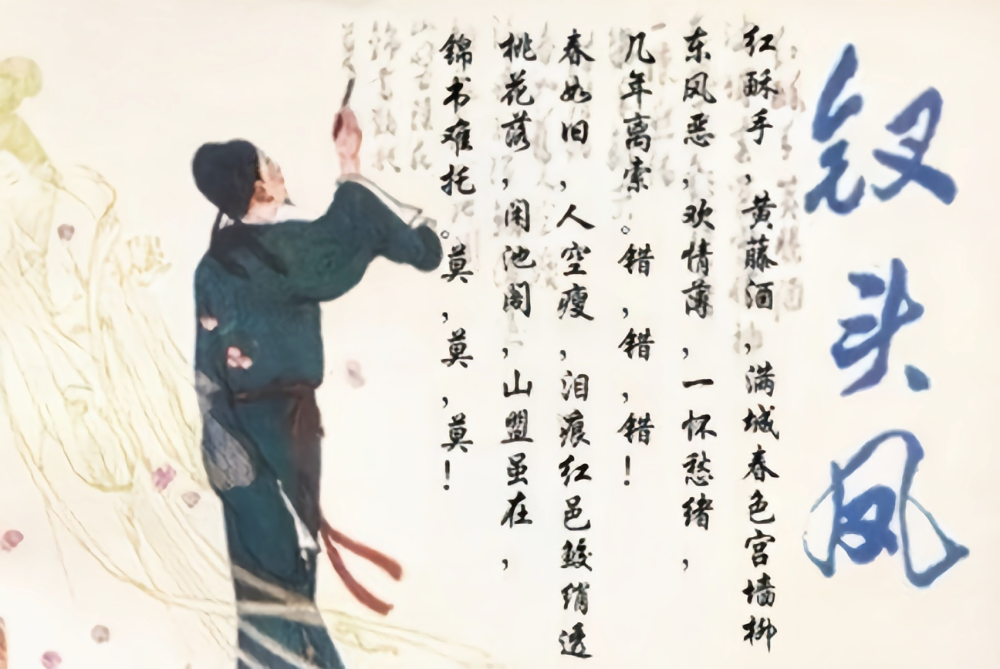 钗头凤
红酥手,黄藤酒,满城春色宫墙柳
东风恶,欢情薄,一怀愁绪,
几年离索。错,错,错!
春如旧,人空瘦,泪痕红邑鲛绡透
桃花落,闲池阁,山盟虽在,
锦书难托。莫,莫,莫!